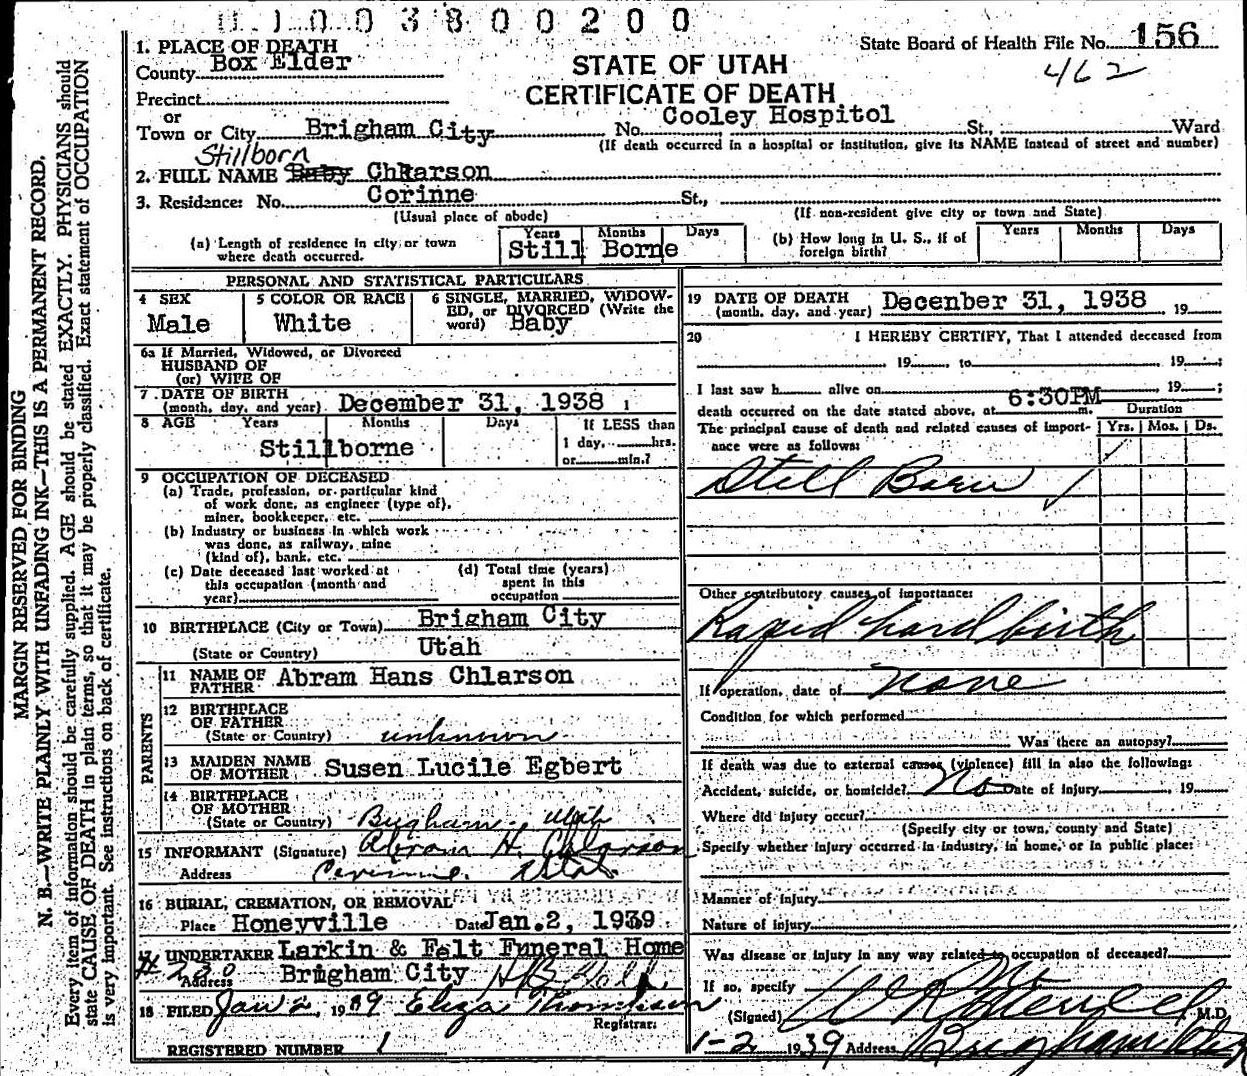 0 1 0 0 3 8 0 0 2 0 0
State Board of Health File No. 156
462
STATE OF UTAH
CERTIFICATE OF DEATH
1. PLACE OF DEATH
County Box Elder
Precinct
or
Town or City Brigham City No. Cooley Hospitol St., Ward
(If death occurred in a hospital or institution, give its NAME instead of street and number)
Stillborn
2. FULL NAME Baby Chlarson
3. Residence: No. Corinne St.,
(Usual place of abode) (If non-resident give city or town and State)
(a) Length of residence in city or town where death occurred. Years Months Days
Still Borne
(b) How long in U. S., if of foreign birth? Years Months Days
PERSONAL AND STATISTICAL PARTICULARS
4 SEX
Male
5 COLOR OR RACE
White
6 SINGLE, MARRIED, WIDOW-
ED, or DIVORCED (Write the
word) Baby
6a If Married, Widowed, or Divorced
HUSBAND OF
(or) WIFE OF
7 DATE OF BIRTH
(month, day, and year) December 31, 1938
8 AGE Years Months Days If LESS than
1 day, hrs.
or min.?
Stillborne
9 OCCUPATION OF DECEASED
(a) Trade, profession, or particular kind
of work done, as engineer (type of),
miner, bookkeeper, etc.
(b) Industry or business in which work
was done, as railway, mine
(kind of), bank, etc.
(c) Date deceased last worked at
this occupation (month and
year)
(d) Total time (years)
spent in this
occupation
10 BIRTHPLACE (City or Town) Brigham City
(State or Country) Utah
PARENTS
11 NAME OF
FATHER Abram Hans Chlarson
12 BIRTHPLACE
OF FATHER
(State or Country) unknown
13 MAIDEN NAME
OF MOTHER Susen Lucile Egbert
14 BIRTHPLACE
OF MOTHER
(State or Country) Brigham, Utah
15 INFORMANT (Signature) Abram H. Chlarson
Address Corinne, Utah
16 BURIAL, CREMATION, OR REMOVAL
Place Honeyville Date Jan. 2, 1939
17 UNDERTAKER Larkin & Felt Funeral Home
# 230
Address Brigham City
18 FILED Jan 2, 1939 Eliza Thompson
Registrar
REGISTERED NUMBER 1
19 DATE OF DEATH
(month, day, and year) Decenber 31, 1938 19
20 I HEREBY CERTIFY, That I attended deceased from
19 , to 19 ;
I last saw h alive on , 19 ;
death occurred on the date stated above, at 6:30PM m.
The principal cause of death and related causes of import-
ance were as follows:
Duration
Yrs. Mos. Ds.
Still Born
Other contributory causes of importance:
Rapid hard birth
If operation, date of none
Condition for which performed
Was there an autopsy?
If death was due to external causes (violence) fill in also the following:
Accident, suicide, or homicide? No Date of injury , 19
Where did injury occur?
(Specify city or town, county and State)
Specify whether injury occurred in industry, in home, or in public place:
Manner of injury
Nature of injury
Was disease or injury in any way related to occupation of deceased?
If so, specify No
(Signed) M.D.
1-2 1939 Address Brigham
MARGIN RESERVED FOR BINDING
N. B.—WRITE PLAINLY WITH UNFADING INK—THIS IS A PERMANENT RECORD.
Every item of information should be carefully supplied. AGE should be stated EXACTLY. PHYSICIANS should
state CAUSE OF DEATH in plain terms, so that it may be properly classified. Exact statement of OCCUPATION
is very important. See instructions on back of certificate.